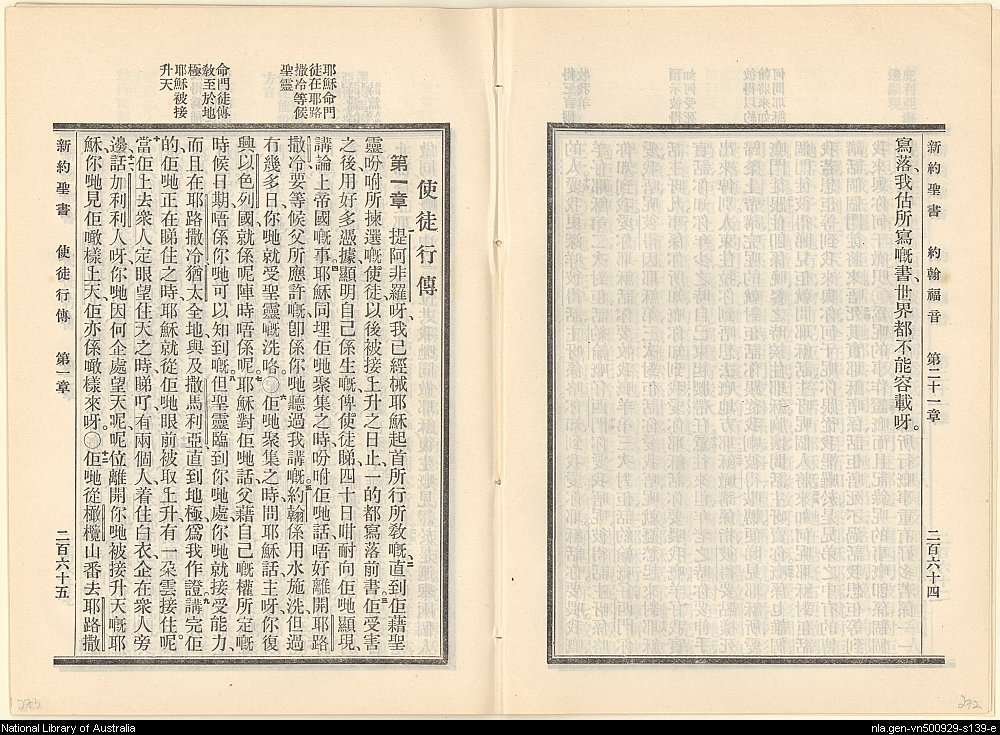 新約聖書 約翰福音 第二十一章 二百六十四
寫落、我估所寫嘅書、世界都不能容載呀。
耶穌命門
徒在耶路
撒冷等候
聖靈
命門徒傳
教至於地
極
耶穌被接
升天
使徒行傳
第一章 提阿非羅呀、我已經械耶穌起首所行所教嘅、二直到佢藉聖
靈吩咐所揀選嘅使徒以後、被接上升之日止、一的都寫落前書、三佢受害
之後、用好多憑據、顯明自己係生嘅、俾使徒睇、四十日咁耐向佢哋顯現、
講論上帝國嘅事、四耶穌同埋佢哋聚集之時、吩咐佢哋話、唔好離開耶路
撒冷、要等候父所應許嘅、卽係你哋聽過我講嘅、五約翰係用水施洗、但過
冇幾多日、你哋就受聖靈嘅洗咯。〇六佢哋聚集之時、問耶穌話、主呀、你復
興以色列國、就係呢陣時唔係呢。七耶穌對佢哋話、父藉自己嘅權所定嘅
時候日期、唔係你哋可以知到嘅。八但聖靈臨到你哋處、你哋就接受能力、
而且在耶路撒冷、猶太全地、與及撒馬利亞、直到地極、爲我作證。九講完佢
的、佢哋正在睇住之時、耶穌就從佢哋眼前被取上升、有一朶雲接住呢。
十當佢上去、衆人定眼望住天之時、睇吓、有兩個人着住白衣、企在衆人旁
邊、十一話、加利利人呀、你哋因何企處望天呢、呢位離開你哋被接升天嘅耶
穌、你哋見佢噉樣上天、佢亦係噉樣來呀。〇十二佢哋從橄欖山番去耶路撒
新約聖書 使徒行傳 第一章 二百六十五
272
National Library of Australia
nla.gen-vn500929-s139-e